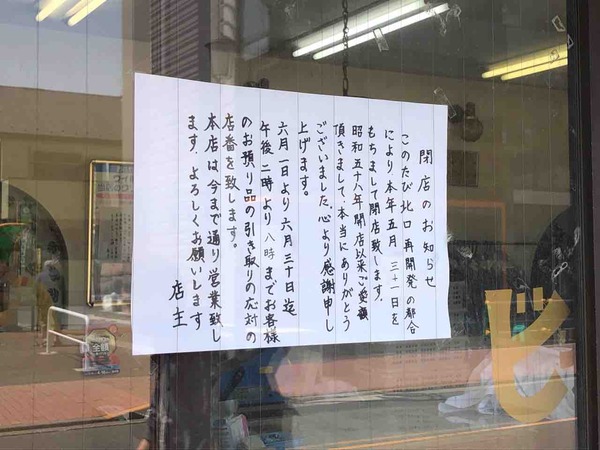 閉店のお知らせ
このたび北口再開発の都合
により本年五月三十一日を
もちまして閉店致します。
昭和五十八年開店以来ご愛顧
頂きまして、本当にありがとう
ございました。心より感謝申し
上げます。
六月一日より六月三十日迄
午後二時より八時までお客様
のお預り品の引き取りの応対の
店番を致します。
本店は今まで通り営業致し
ます。よろしくお願いします
店主
ビ